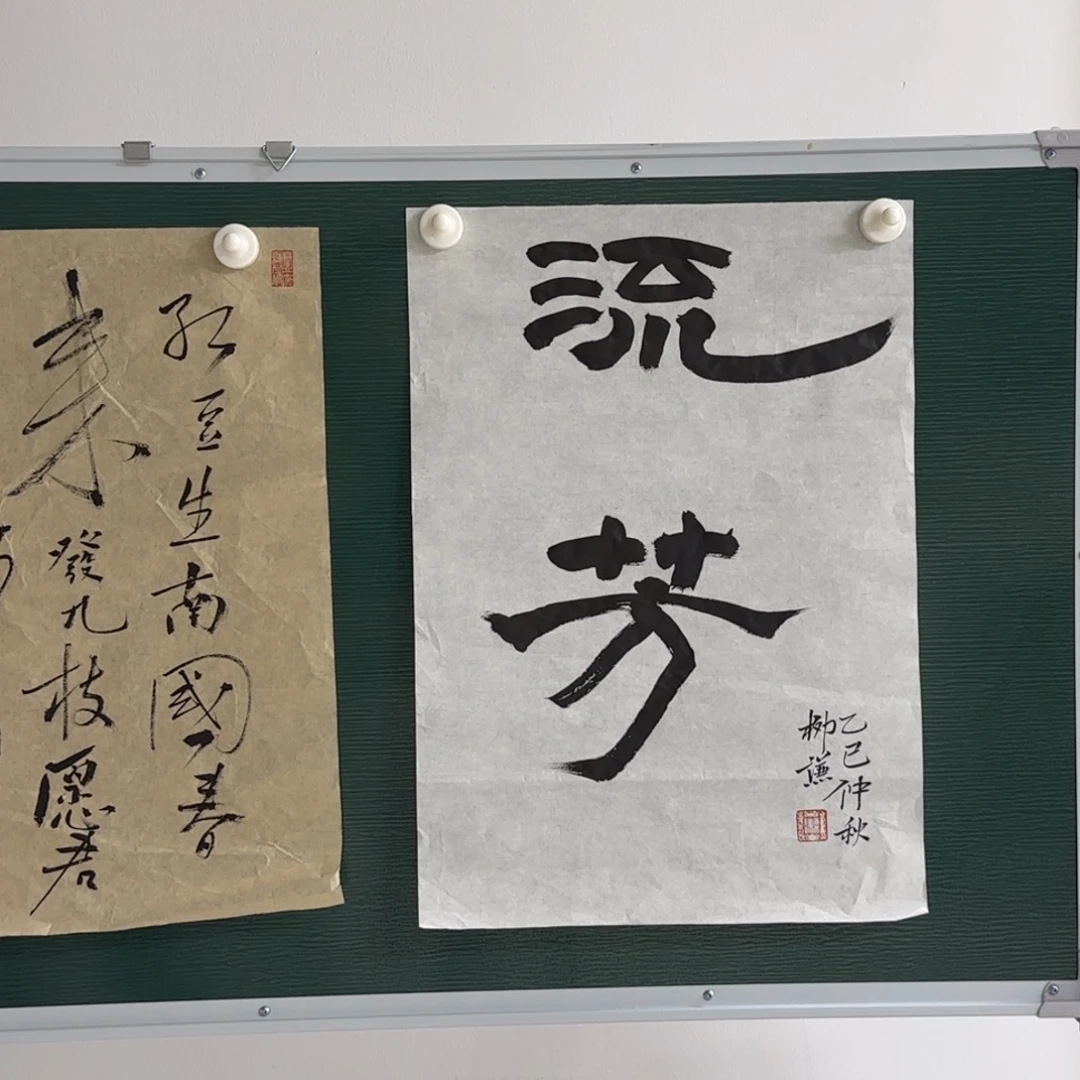 红豆生南國春
来發几枝愿君
流芳
乙巳仲秋
柳謙